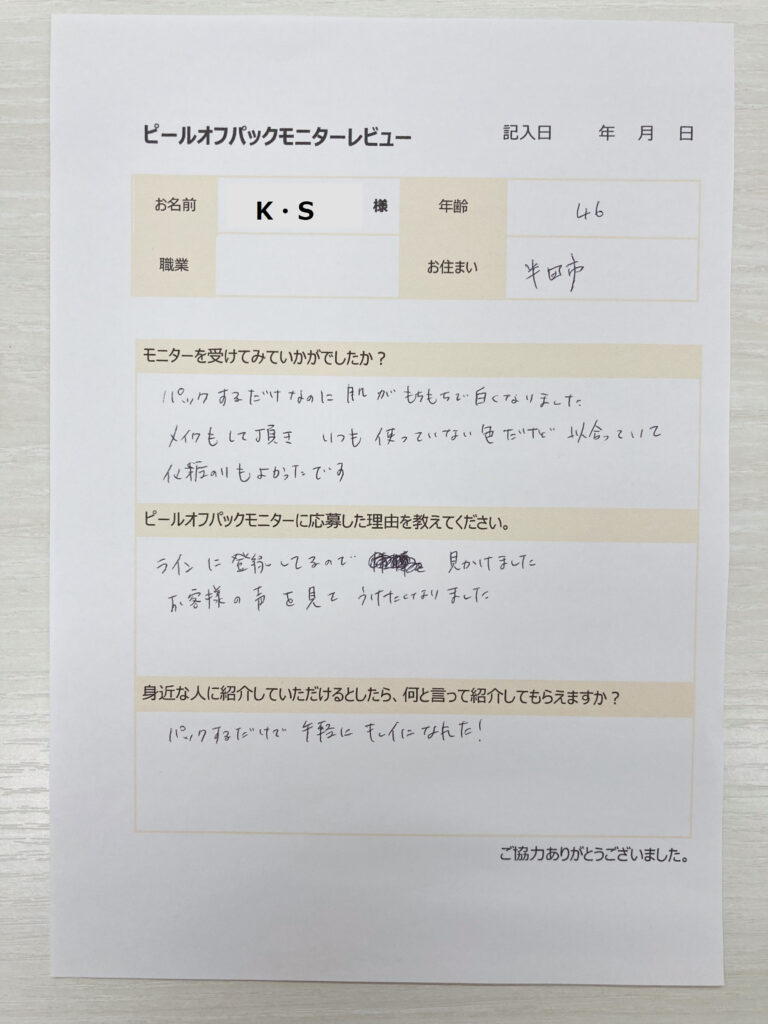 ピールオフパックモニターレビュー 記入日 年 月 日
お名前 K・S 様 年齢 46
職業 お住まい 半田市
モニターを受けてみていかがでしたか？
パックするだけなのに 肌が もちもちで白くなりました
メイクもして頂き いつも 使っていない色だけど 似合っていて
化粧のりもよかったです
ピールオフパックモニターに応募した理由を教えてください。
ラインに登録してるので 見かけました
お客様の声を見て うけたくなりました
身近な人に紹介していただけるとしたら、何と言って紹介してもらえますか？
パックするだけで 手軽に キレイになれた！
ご協力ありがとうございました。